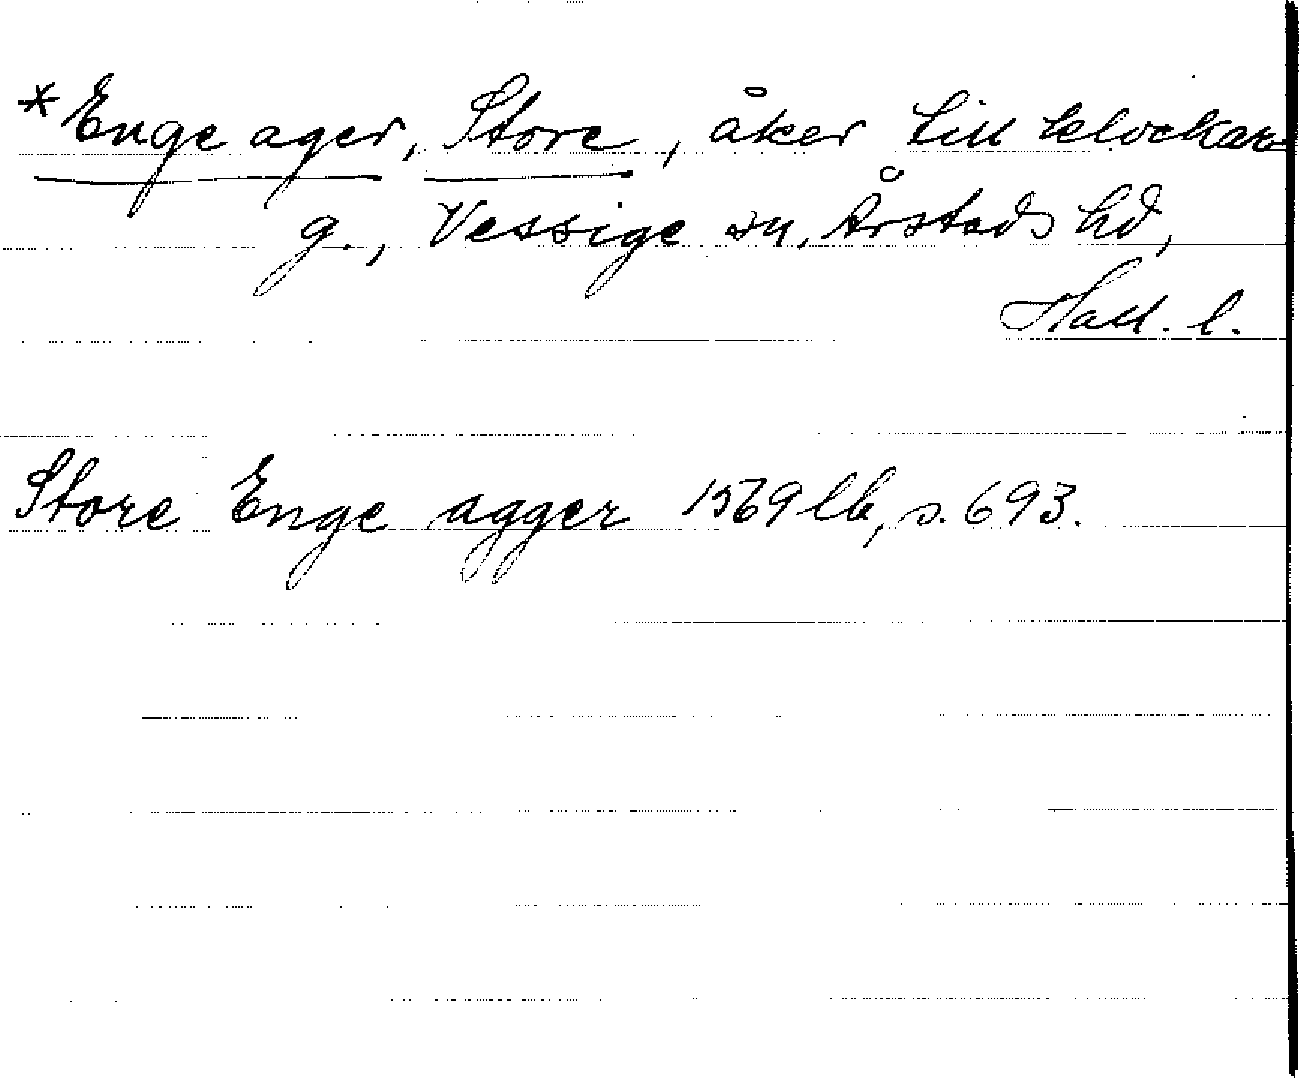 *Enge ager, Store, åker till klockar-
g., Vessige sn, Årstads hd,
Hall. l.
Store Enge agger 1569 lb, s. 693.